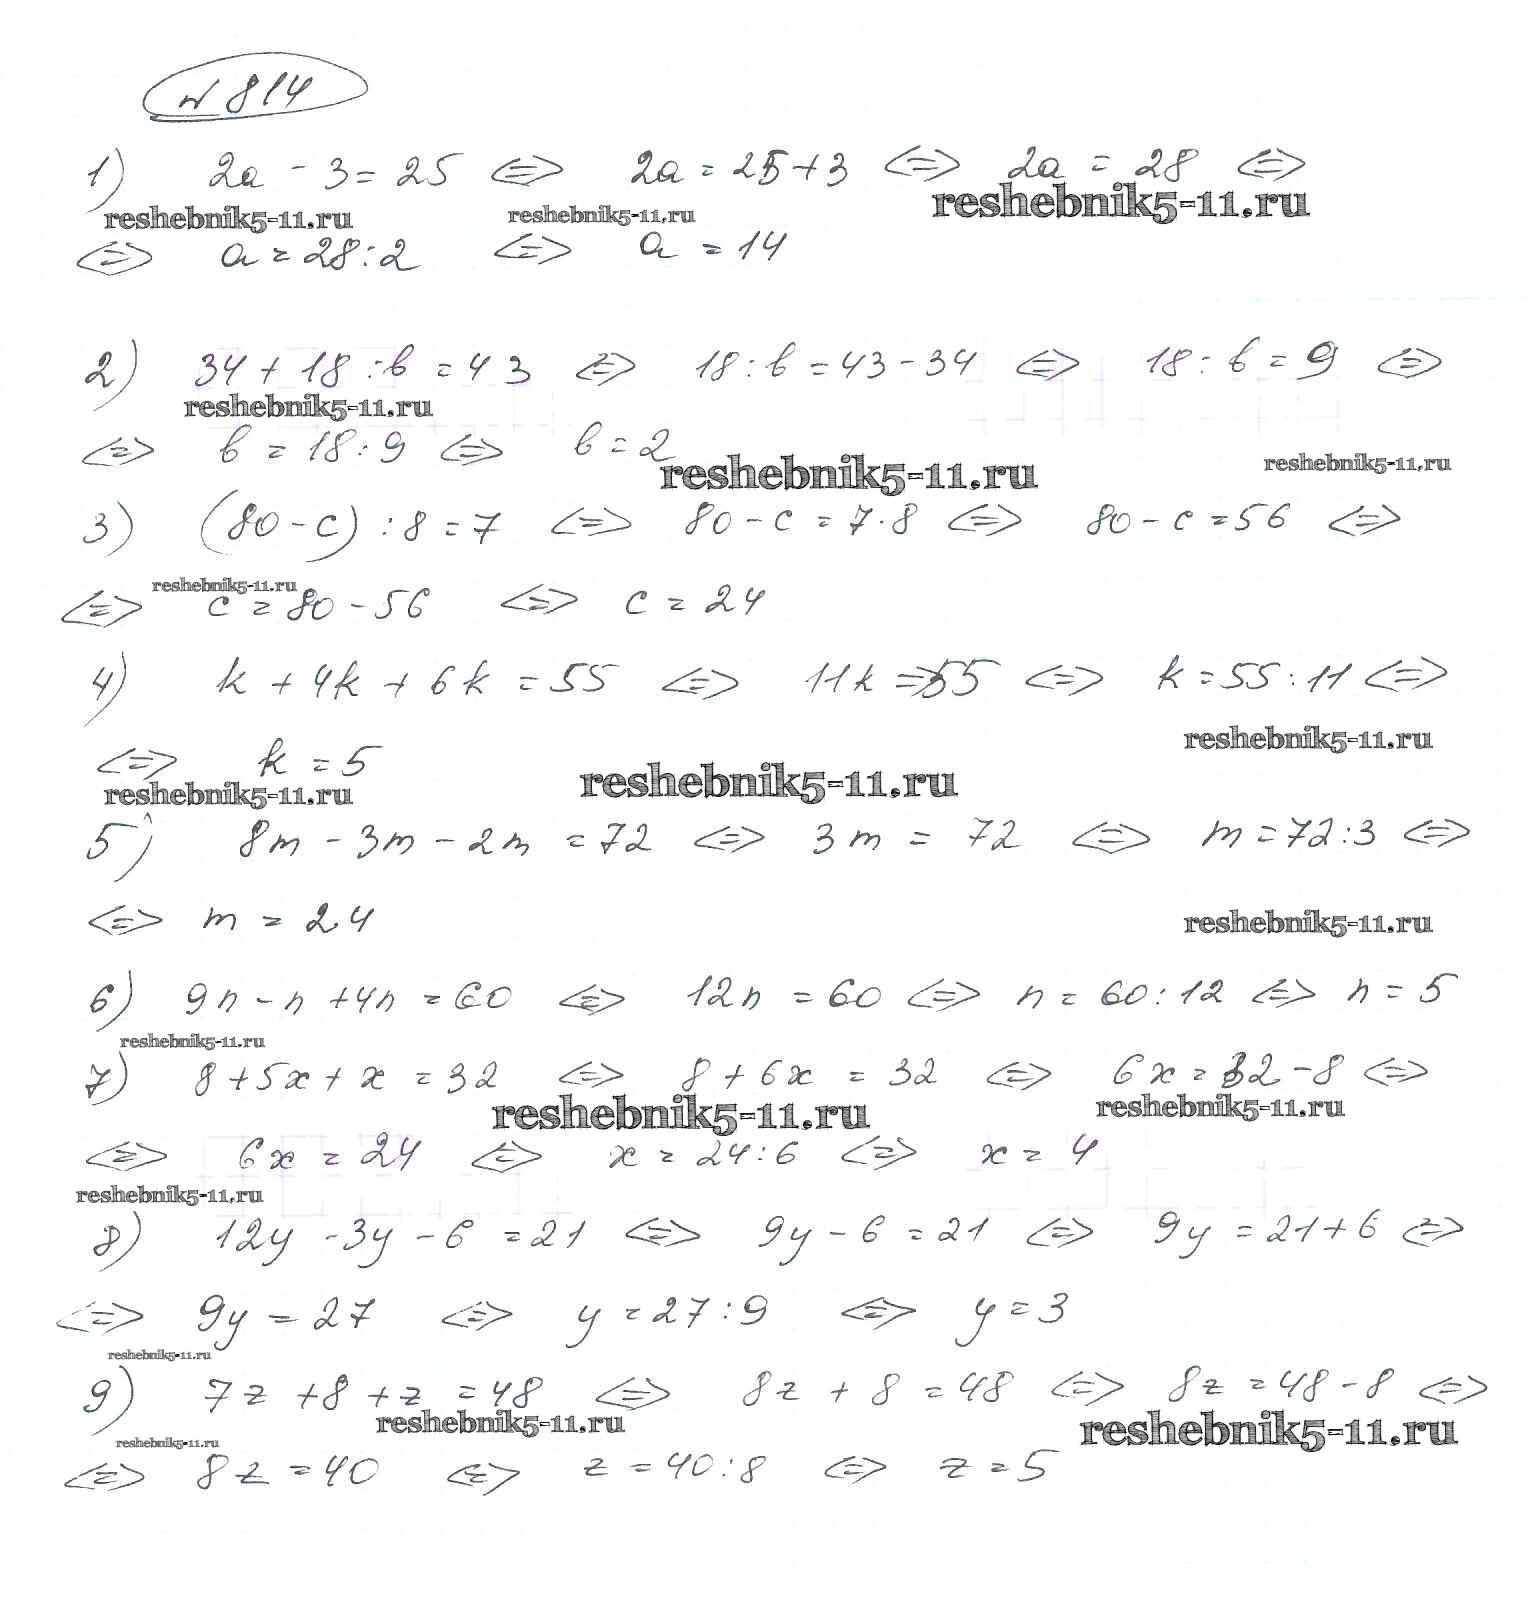 № 814
1) 2a - 3 = 25 <=> 2a = 25 + 3 <=> 2a = 28 <=>
reshebnik5-11.ru reshebnik5-11.ru reshebnik5-11.ru
<=> a = 28 : 2 <=> a = 14
2) 34 + 18 : b = 43 <=> 18 : b = 43 - 34 <=> 18 : b = 9 <=>
reshebnik5-11.ru
<=> b = 18 : 9 <=> b = 2
reshebnik5-11.ru reshebnik5-11.ru
3) (80 - c) : 8 = 7 <=> 80 - c = 7 · 8 <=> 80 - c = 56 <=>
reshebnik5-11.ru
<=> c = 80 - 56 <=> c = 24
4) k + 4k + 6k = 55 <=> 11k = 55 <=> k = 55 : 11 <=>
reshebnik5-11.ru
<=> k = 5
reshebnik5-11.ru reshebnik5-11.ru
5) 8m - 3m - 2m = 72 <=> 3m = 72 <=> m = 72 : 3 <=>
<=> m = 24
reshebnik5-11.ru
6) 9n - n + 4n = 60 <=> 12n = 60 <=> n = 60 : 12 <=> n = 5
reshebnik5-11.ru
7) 8 + 5x + x = 32 <=> 8 + 6x = 32 <=> 6x = 32 - 8 <=>
reshebnik5-11.ru reshebnik5-11.ru
<=> 6x = 24 <=> x = 24 : 6 <=> x = 4
reshebnik5-11.ru
8) 12y - 3y - 6 = 21 <=> 9y - 6 = 21 <=> 9y = 21 + 6 <=>
<=> 9y = 27 <=> y = 27 : 9 <=> y = 3
reshebnik5-11.ru
9) 7z + 8 + z = 48 <=> 8z + 8 = 48 <=> 8z = 48 - 8 <=>
reshebnik5-11.ru reshebnik5-11.ru reshebnik5-11.ru
<=> 8z = 40 <=> z = 40 : 8 <=> z = 5